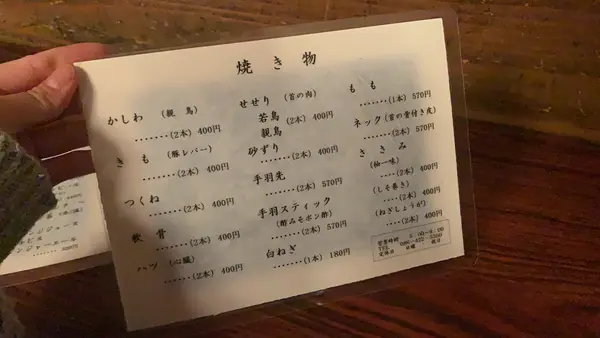 焼き物
かしわ (親鳥)
.......(2本) 400円
きも (豚レバー)
.......(2本) 400円
つくね
.......(2本) 400円
軟骨
.......(2本) 400円
ハツ (心臓)
.......(2本) 400円
せせり (首の肉)
若鳥 (2本) 400円
親鳥
砂ずり
.......(2本) 400円
手羽先
.......(2本) 570円
手羽スティック
(酢みそポン酢)
.......(2本) 570円
白ねぎ
.......(1本) 180円
もも
.......(1本) 570円
ネック (首の骨付き皮)
.......(2本) 570円
ささみ
(柚一味)
.......(2本) 400円
(しそ巻き)
.......(2本) 400円
(ねぎしょうが)
.......(2本) 400円
営業時間
TEL
定休日 日曜 祝日